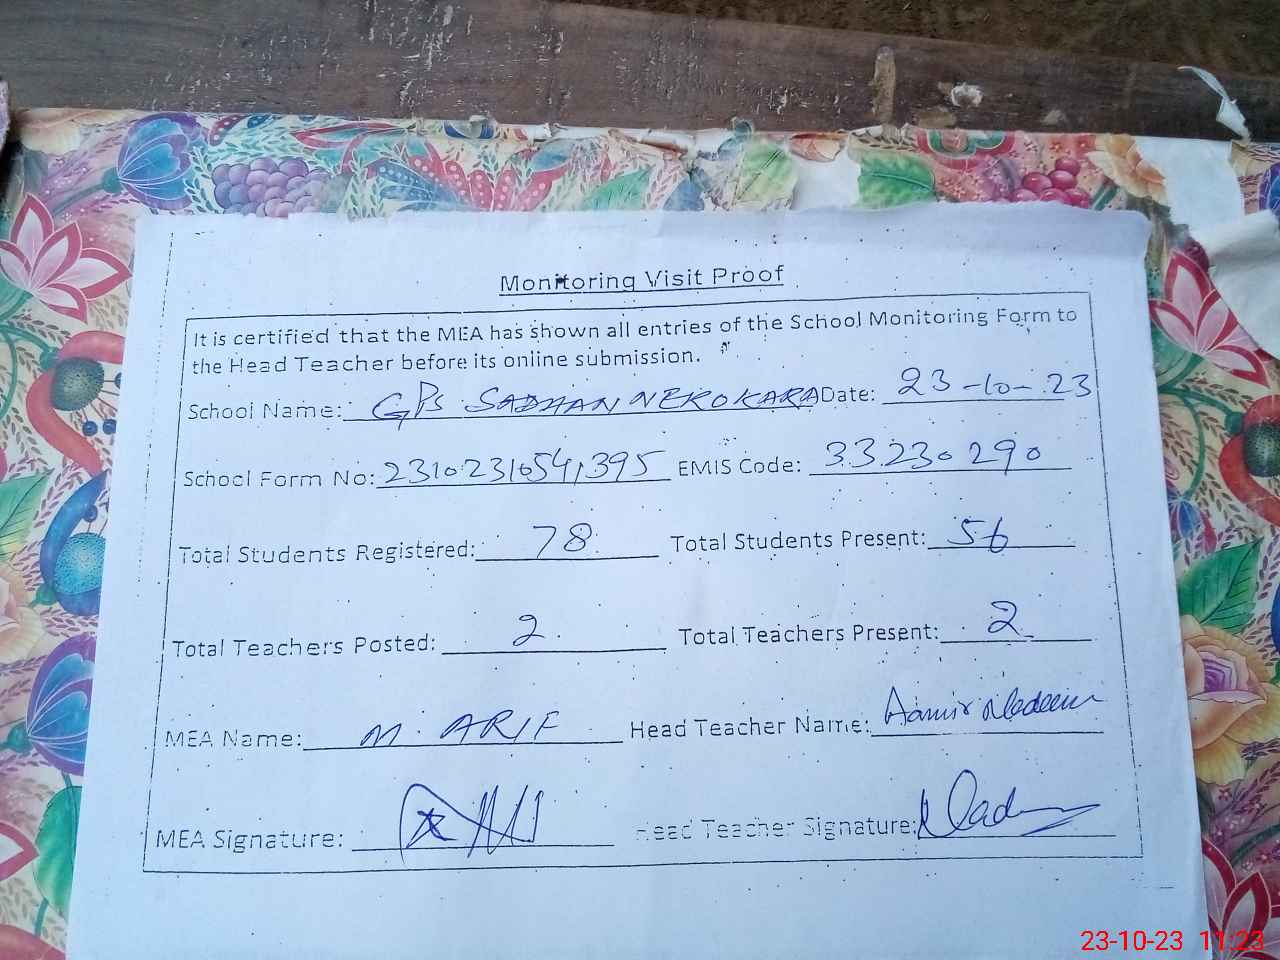 Monitoring Visit Proof
It is certified that the MEA has shown all entries of the School Monitoring Form to
the Head Teacher before its online submission.
School Name: GPS SADHAN NEKOKARA Date: 23-10-23
School Form No: 23102310541395 EMIS Code: 33230290
Total Students Registered: 78 Total Students Present: 56
Total Teachers Posted: 2 Total Teachers Present: 2
MEA Name: M. ARIF Head Teacher Name: Aamir Nadeem
MEA Signature: Head Teacher Signature:
23-10-23 11:23